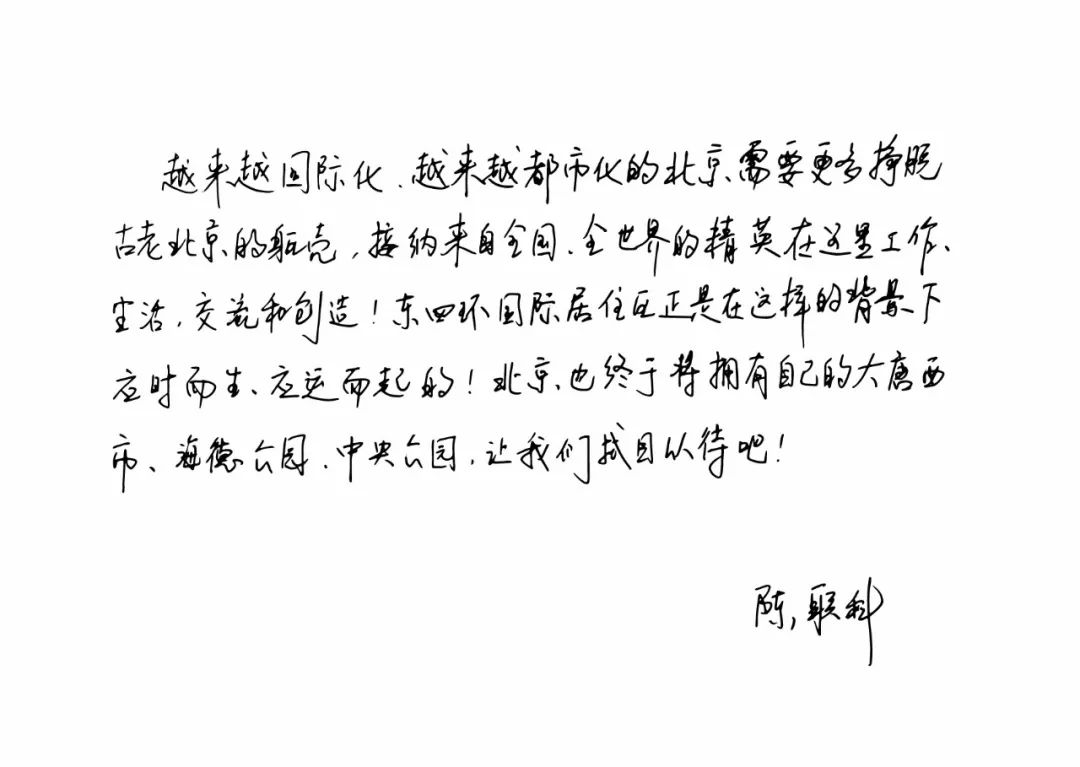 越来越国际化、越来越都市化的北京需要更多挣脱
古老北京的躯壳,接纳来自全国、全世界的精英在这里工作、
生活,交流和创造!东四环国际居住区正是在这样的背景下
应时而生、应运而起的!北京也终于将拥有自己的大唐西
市、海德公园、中央公园,让我们拭目以待吧!
陈联科